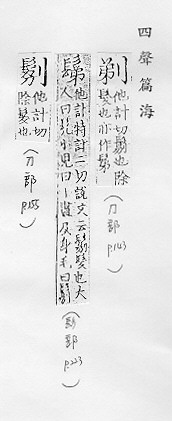 四聲篇海
剃
他計切鬄也除
髮也亦作鬀
(刀部 p.143)
鬀
他計特計二切說文云鬄髮也大
人曰髡小兒曰丨盡及身毛曰鬄
(髟部 p.223)
他計切
除髮也
(刀部 p.155)